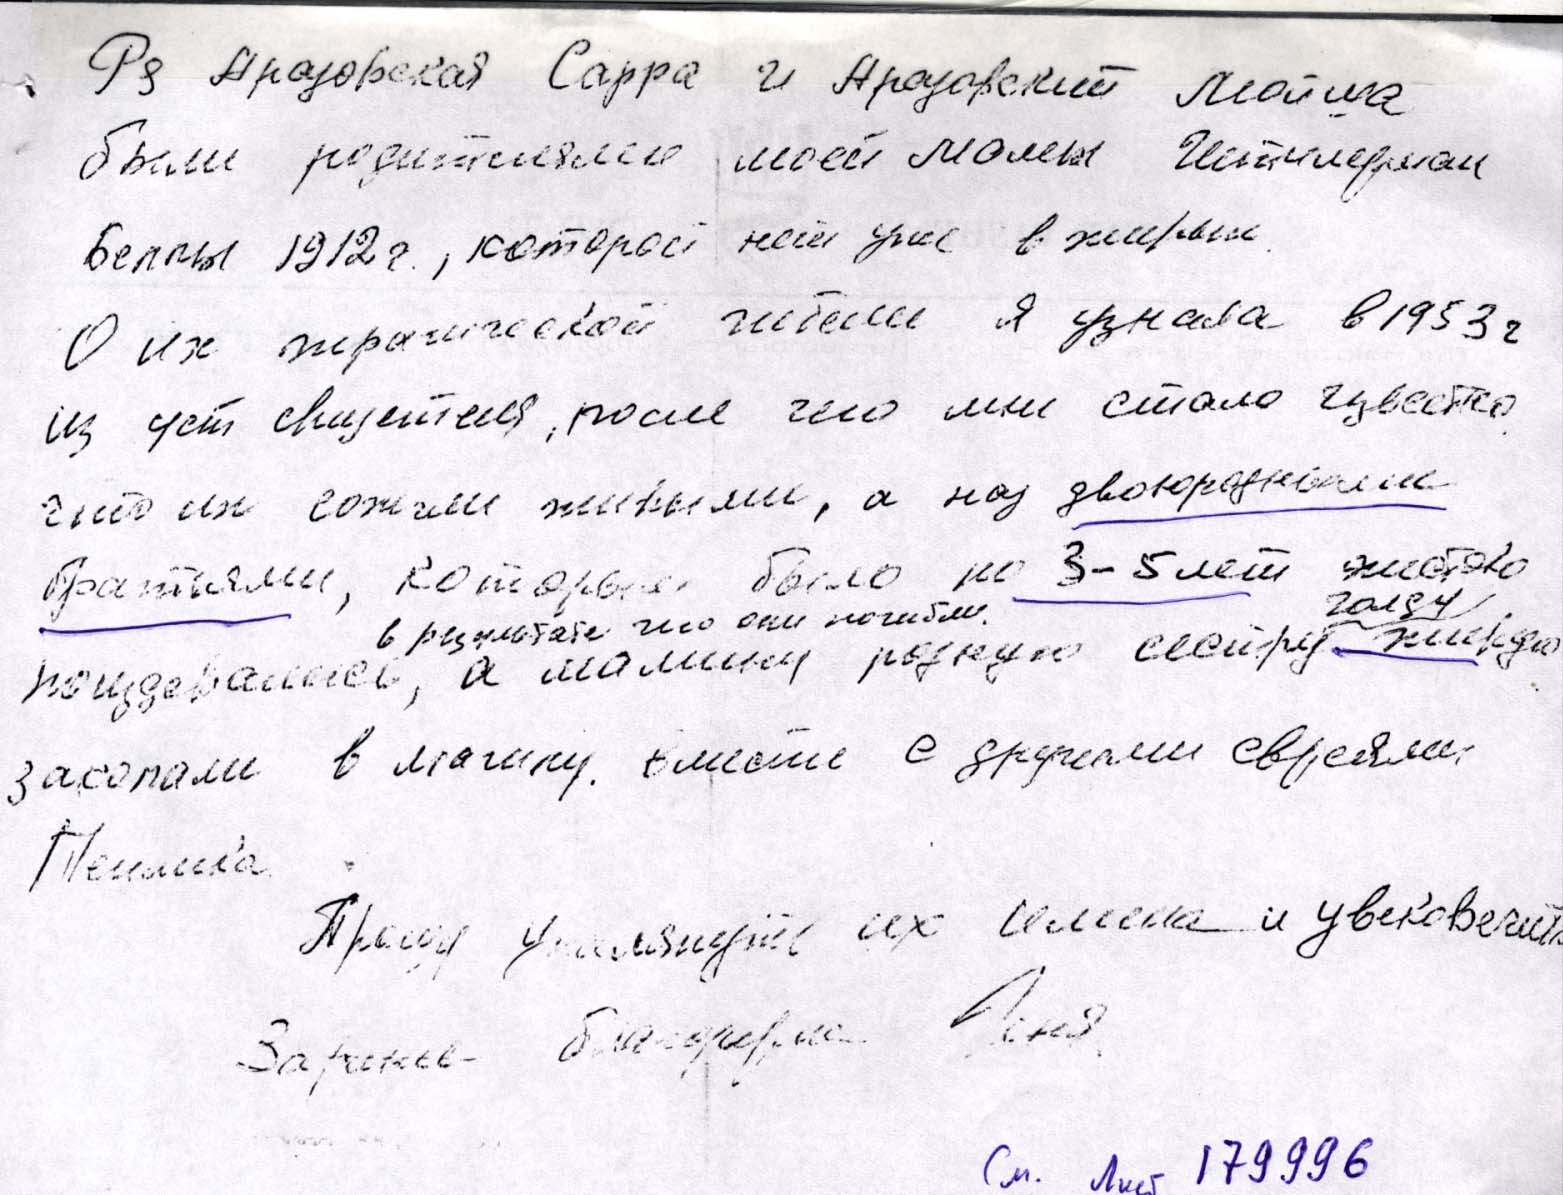 Рs Арозовская Сарра и Арозовский Мойша
были родителями моей мамы
Беллы 1912г., которой нет уже в живых.
О их трагической гибели я узнала в 1953г
из уст свидетеля, после чего мне стало известно,
что их сожгли живыми, а над двоюродными
братьями, которым было по 3-5 лет жестоко
в результате чего они погибли. Голду
поиздевались, а мамину родную сестру живую
закопали в могилу. вместе с другими евреями
Прошу упомянуть их имена и увековечить
Заранее благодарна Геня
См. Лист 179996